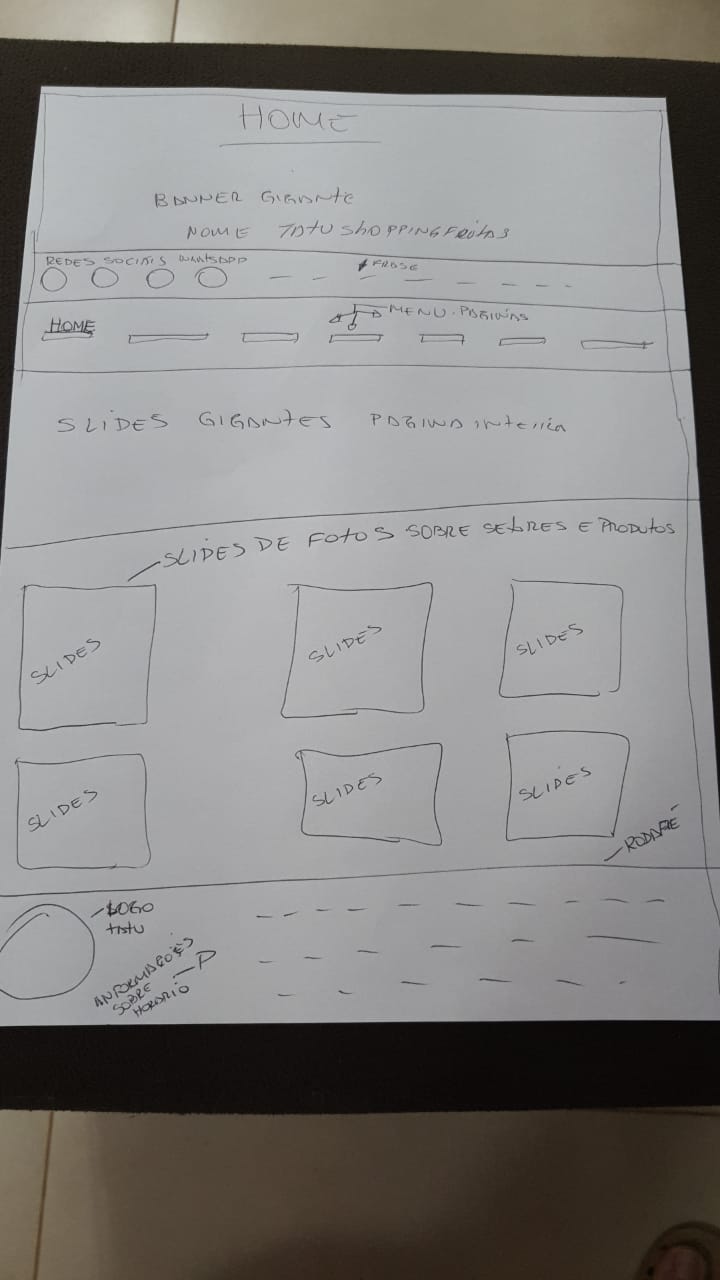 HOME
BANNER GIGANTE
NOME TATU SHOPPING FREITAS
REDES SOCIAIS WHATSAPP
FRASE
HOME
MENU. PAGINAS
SLIDES GIGANTES PAGINA INTEIRA
SLIDES DE FOTOS SOBRE SETORES E PRODUTOS
SLIDES
SLIDES
SLIDES
SLIDES
SLIDES
SLIDES
RODAPÉ
LOGO
TATU
INFORMAÇÕES
SOBRE
HORARIO